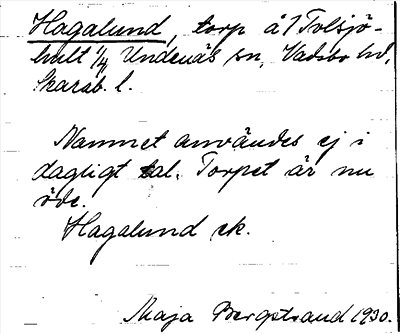 Hagalund, torp å 1 Tolsjö-
hult 1/4 Undenäs sn, Vadsbo hd,
Skarab. l.
Namnet användes ej i
dagligt tal. Torpet är nu
öde.
Hagalund ek.
Maja Bergstrand 1930.